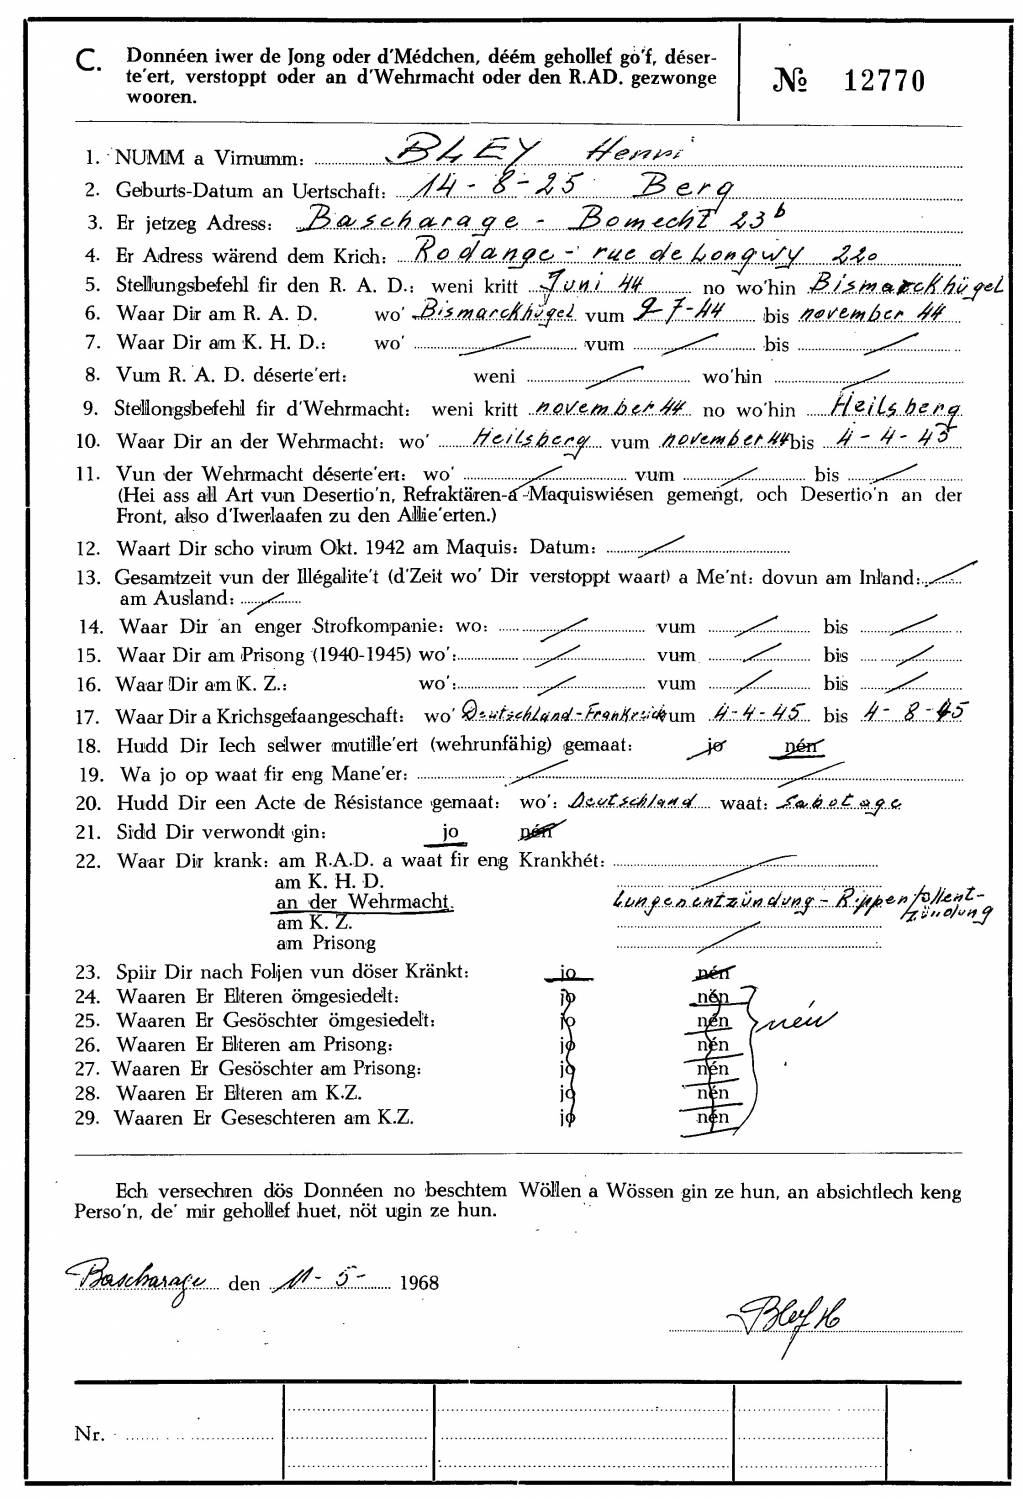 C. Donnéen iwer de Jong oder d'Médchen, déém gehollef go'f, déser-
te'ert, verstoppt oder an d'Wehrmacht oder den R.AD. gezwonge
wooren.
№ 12770
1. NUMM a Virnumm: BLEY Henri
2. Geburts-Datum an Uertschaft: 14-8-25 Berg
3. Er jetzeg Adress: Bascharage - Bomecht 23b
4. Er Adress wärend dem Krich: Rodange - rue de Longwy 220
5. Stellungsbefehl fir den R. A. D.: weni kritt Juni 44 no wo'hin Bismarckhügel
6. Waar Dir am R. A. D. wo' Bismarckhügel vum 2-7-44 bis november 44
7. Waar Dir am K. H. D.: wo' vum bis
8. Vum R. A. D. déserte'ert: weni wo'hin
9. Stellongsbefehl fir d'Wehrmacht: weni kritt november 44 no wo'hin Heilsberg
10. Waar Dir an der Wehrmacht: wo' Heilsberg vum november 44 bis 4-4-45
11. Vun der Wehrmacht déserte'ert: wo' vum bis
(Hei ass all Art vun Desertio'n, Refraktären-a-Maquiswiésen gemengt, och Desertio'n an der
Front, also d'Iwerlaafen zu den Allie'erten.)
12. Waart Dir scho virum Okt. 1942 am Maquis: Datum:
13. Gesamtzeit vun der Illégalite't (d'Zeit wo' Dir verstoppt waart) a Me'nt: dovun am Inland:
am Ausland:
14. Waar Dir an enger Strofkompanie: wo: vum bis
15. Waar Dir am Prisong (1940-1945) wo': vum bis
16. Waar Dir am K. Z.: wo': vum bis
17. Waar Dir a Krichsgefaangeschaft: wo' Deutschland-Frankreich vum 4-4-45 bis 4-8-45
18. Hudd Dir Iech selwer mutille'ert (wehrunfähig) gemaat: jo nén
19. Wa jo op waat fir eng Mane'er:
20. Hudd Dir een Acte de Résistance gemaat: wo': Deutschland waat: Sabotage
21. Sidd Dir verwondt gin: jo nén
22. Waar Dir krank: am R.A.D. a waat fir eng Krankhét:
am K. H. D.
an der Wehrmacht. Lungenentzündung - Rippenfellent-
zündung
am K. Z.
am Prisong
23. Spiir Dir nach Foljen vun döser Kränkt: jo nén
24. Waaren Er Elteren ömgesiedelt: jo nén
25. Waaren Er Gesöschter ömgesiedelt: jo nén nén
26. Waaren Er Elteren am Prisong: jo nén
27. Waaren Er Gesöschter am Prisong: jo nén
28. Waaren Er Elteren am K.Z. jo nén
29. Waaren Er Geseschteren am K.Z. jo nén
Ech versechren dös Donnéen no beschtem Wöllen a Wössen gin ze hun, an absichtlech keng
Perso'n, de' mir gehollef huet, nöt ugin ze hun.
Bascharage den 11-5- 1968
Bley H
Nr.